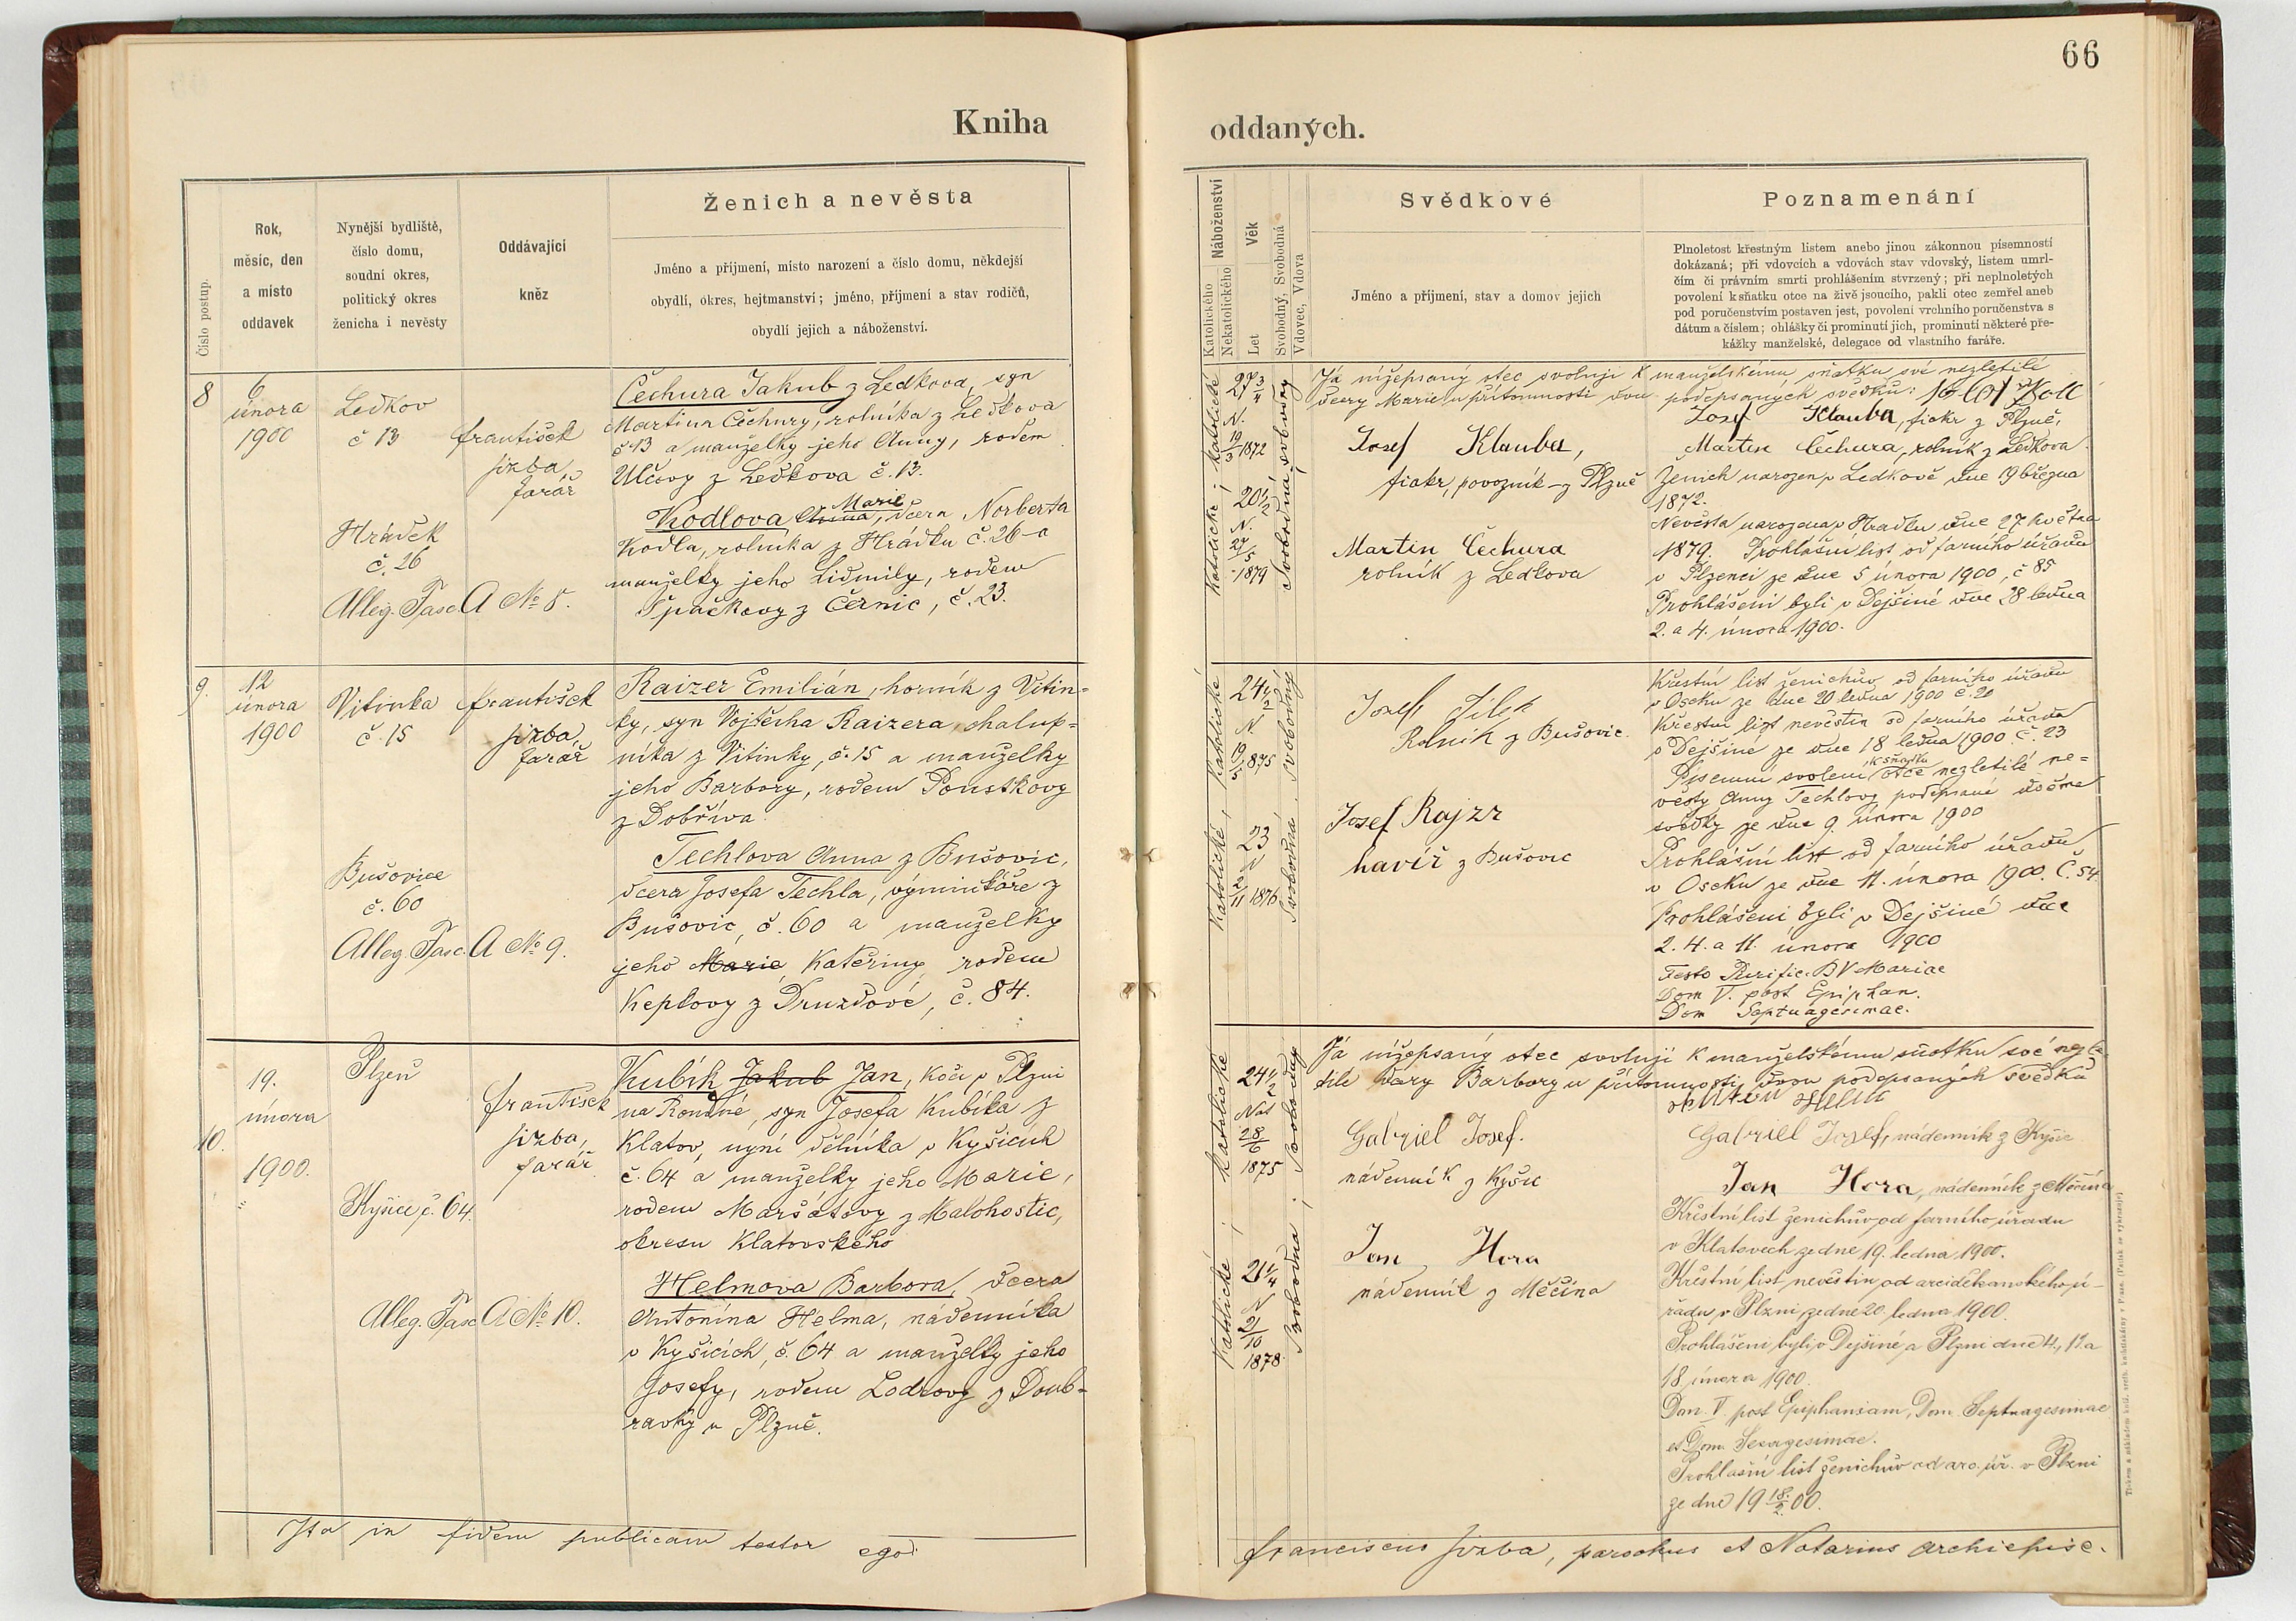 66
Kniha
oddaných.
Číslo postup.
Rok,
měsíc, den
a místo
oddavek
Nynější bydliště,
číslo domu,
soudní okres,
politický okres
ženicha i nevěsty
Oddávající
kněz
Ženich a nevěsta
Jméno a příjmení, místo narození a číslo domu, někdejší
obydlí, okres, hejtmanství; jméno, příjmení a stav rodičů,
obydlí jejich a náboženství.
8
6
února
1900
Ledkov
č 13
František
Jirba,
farář
Čechura Jakub z Ledkova, syn
Martina Čechury, rolníka z Ledkova
č 13 a manželky jeho Anny, rodem
Ulčovy z Ledkova č. 13.
Hrádek
č. 26
Alleg. Fasc A No 8.
Marie
Kodlova Anna, dcera Norberta
Kodla, rolníka z Hrádku č. 26 a
manželky jeho Lidmily, rodem
Špačkovy z Černic, č. 23.
9.
12
února
1900
Vitinka
č. 15
František
Jirba,
farář
Raizer Emilián, horník z Vitin=
ky, syn Vojtěcha Raizera, chalup=
níka z Vitinky, č. 15 a manželky
jeho Barbory, rodem Poustkovy
z Dobříva.
Bušovice
č. 60
Alleg. Fasc. A No 9.
Techlova Anna z Bušovic,
dcera Josefa Techla, výminkáře z
Bušovic, č. 60 a manželky
jeho Marie Kateřiny rodem
Keplovy z Druzdové, č. 84.
10.
19.
února
1900.
Plzeň
František
Jirba,
farář
Kubík Jakub Jan, kočí v Plzni
na Roudné, syn Josefa Kubíka z
Klatov, nyní dělníka v Kyšicích
č. 64 a manželky jeho Marie,
rodem Maršátovy z Malohostic,
okresu Klatovského
Kyšice, č. 64.
Alleg. Fasc A No 10.
Helmova Barbora, dcera
Antonína Helma, nádenníka
v Kyšicích, č. 64 a manželky jeho
Josefy, rodem Lodrovy z Doub-
ravky u Plzně.
Ita in fidem publicam testor ego:
Náboženství
Katolického
Nekatolického
Věk
Let
Svobodný, Svobodná
Vdovec, Vdova
Svědkové
Jméno a příjmení, stav a domov jejich
Poznamenání
Plnoletost křestným listem anebo jinou zákonnou písemností
dokázaná; při vdovcích a vdovách stav vdovský, listem úmrt-
čím či právním smrti prohlášením stvrzený; při neplnoletých
povolení k sňatku otce na živě jsoucího, pakli otec zemřel aneb
pod poručenstvím postaven jest, povolení vrchního poručenstva s
dátum a číslem; ohlášky či prominutí jich, prominutí některé pře-
kážky manželské, delegace od vlastního faráře.
Já nížepsaný otec svoluji k manželskému sňatku své nezletilé
dcery Marie u přítomnosti dvou podepsaných svědků:
Josef Klauba, fiakr z Plzně,
Martin Čechura, rolník z Ledkova.
katolické
27 3/4
N.
19/3 1872
svobodný
Katolické
20 1/2
N.
27/5
1879
Svobodná
Josef Klauba,
fiakr, povozník z Plzně
Martin Čechura
rolník z Ledkova
Ženich narozen v Ledkově dne 19 března
1872.
Nevěsta narozena v Hrádku dne 27 května
1879. Prohlášní list od farního úřadu
v Plzenci ze dne 5 února 1900, č 85
Prohlášeni byli v Dejšině dne 28 ledna
2. a 4. února 1900.
Katolické
24 1/2
N
19/5 1875
svobodný
Katolické
23
N
2/11 1876
Svobodná
Josef Šilek
Rolník z Bušovic.
Josef Rajzr
havíř z Bušovic
Křestní list ženichův od farního úřadu
v Oseku ze dne 20 ledna 1900 č. 20
Křestní list nevěstin od farního úřadu
v Dejšině ze dne 18 ledna 1900 č. 23
k sňatku
Písemné svolení otce nezletilé ne=
věsty Anny Techlovy podepsané dvěma
svědky ze dne 9. února 1900
Prohlášní list od farního úřadu
v Oseku ze dne 11. února 1900. Č. 54.
Prohlášeni byli v Dejšině dne
2. 4. a 11. února 1900
Festo Purific. BV Mariae
Dom V. post Epiphan.
Dom Septuagesimae.
Já nížepsaný otec svoluji k manželskému sňatku své nezle-
tilé dcery Barbory u přítomnosti dvou podepsaných svědků
Gabriel Josef, nádenník z Kyšic
Jan Hora, nádenník z Měčína
Katolické
24 1/2
Nat
28/6
1875
Svobodný
Katolické
21 1/4
N
21/10
1878
Svobodna
Gabriel Josef.
nádenník z Kyšic
Jan Hora
nádenník z Měčína
Křestní list ženichův od farního úřadu
v Klatovech ze dne 19. ledna 1900.
Křestní list nevěstin od arciděkanského ú-
řadu v Plzni ze dne 20. ledna 1900.
Prohlášeni byli v Dejšině a Plzni dne 4., 11. a
18 února 1900.
Dom. V post Epiphaniam, Dom. Septuagesimae
et Dom. Sexagesimae.
Prohlašní list ženichův od arc. úř. v Plzni
ze dne 19 18/2 00.
Franciscus Jirba, parochus et Notarius archiepisc.